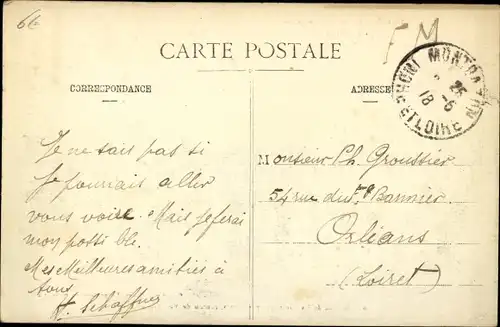 6€
F M
CARTE POSTALE
CORRESPONDANCE
ADRESSE
MONTBAZON
25
18 -6
ET LOIRE
Je ne sais pas si
je pourrais aller
vous voire. Mais je ferai
mon possible.
Mes Meilleures amitiés à
tous.
Monsieur Ph. Groussier
54 rue du Fg Bannier
Orléans
(Loiret)